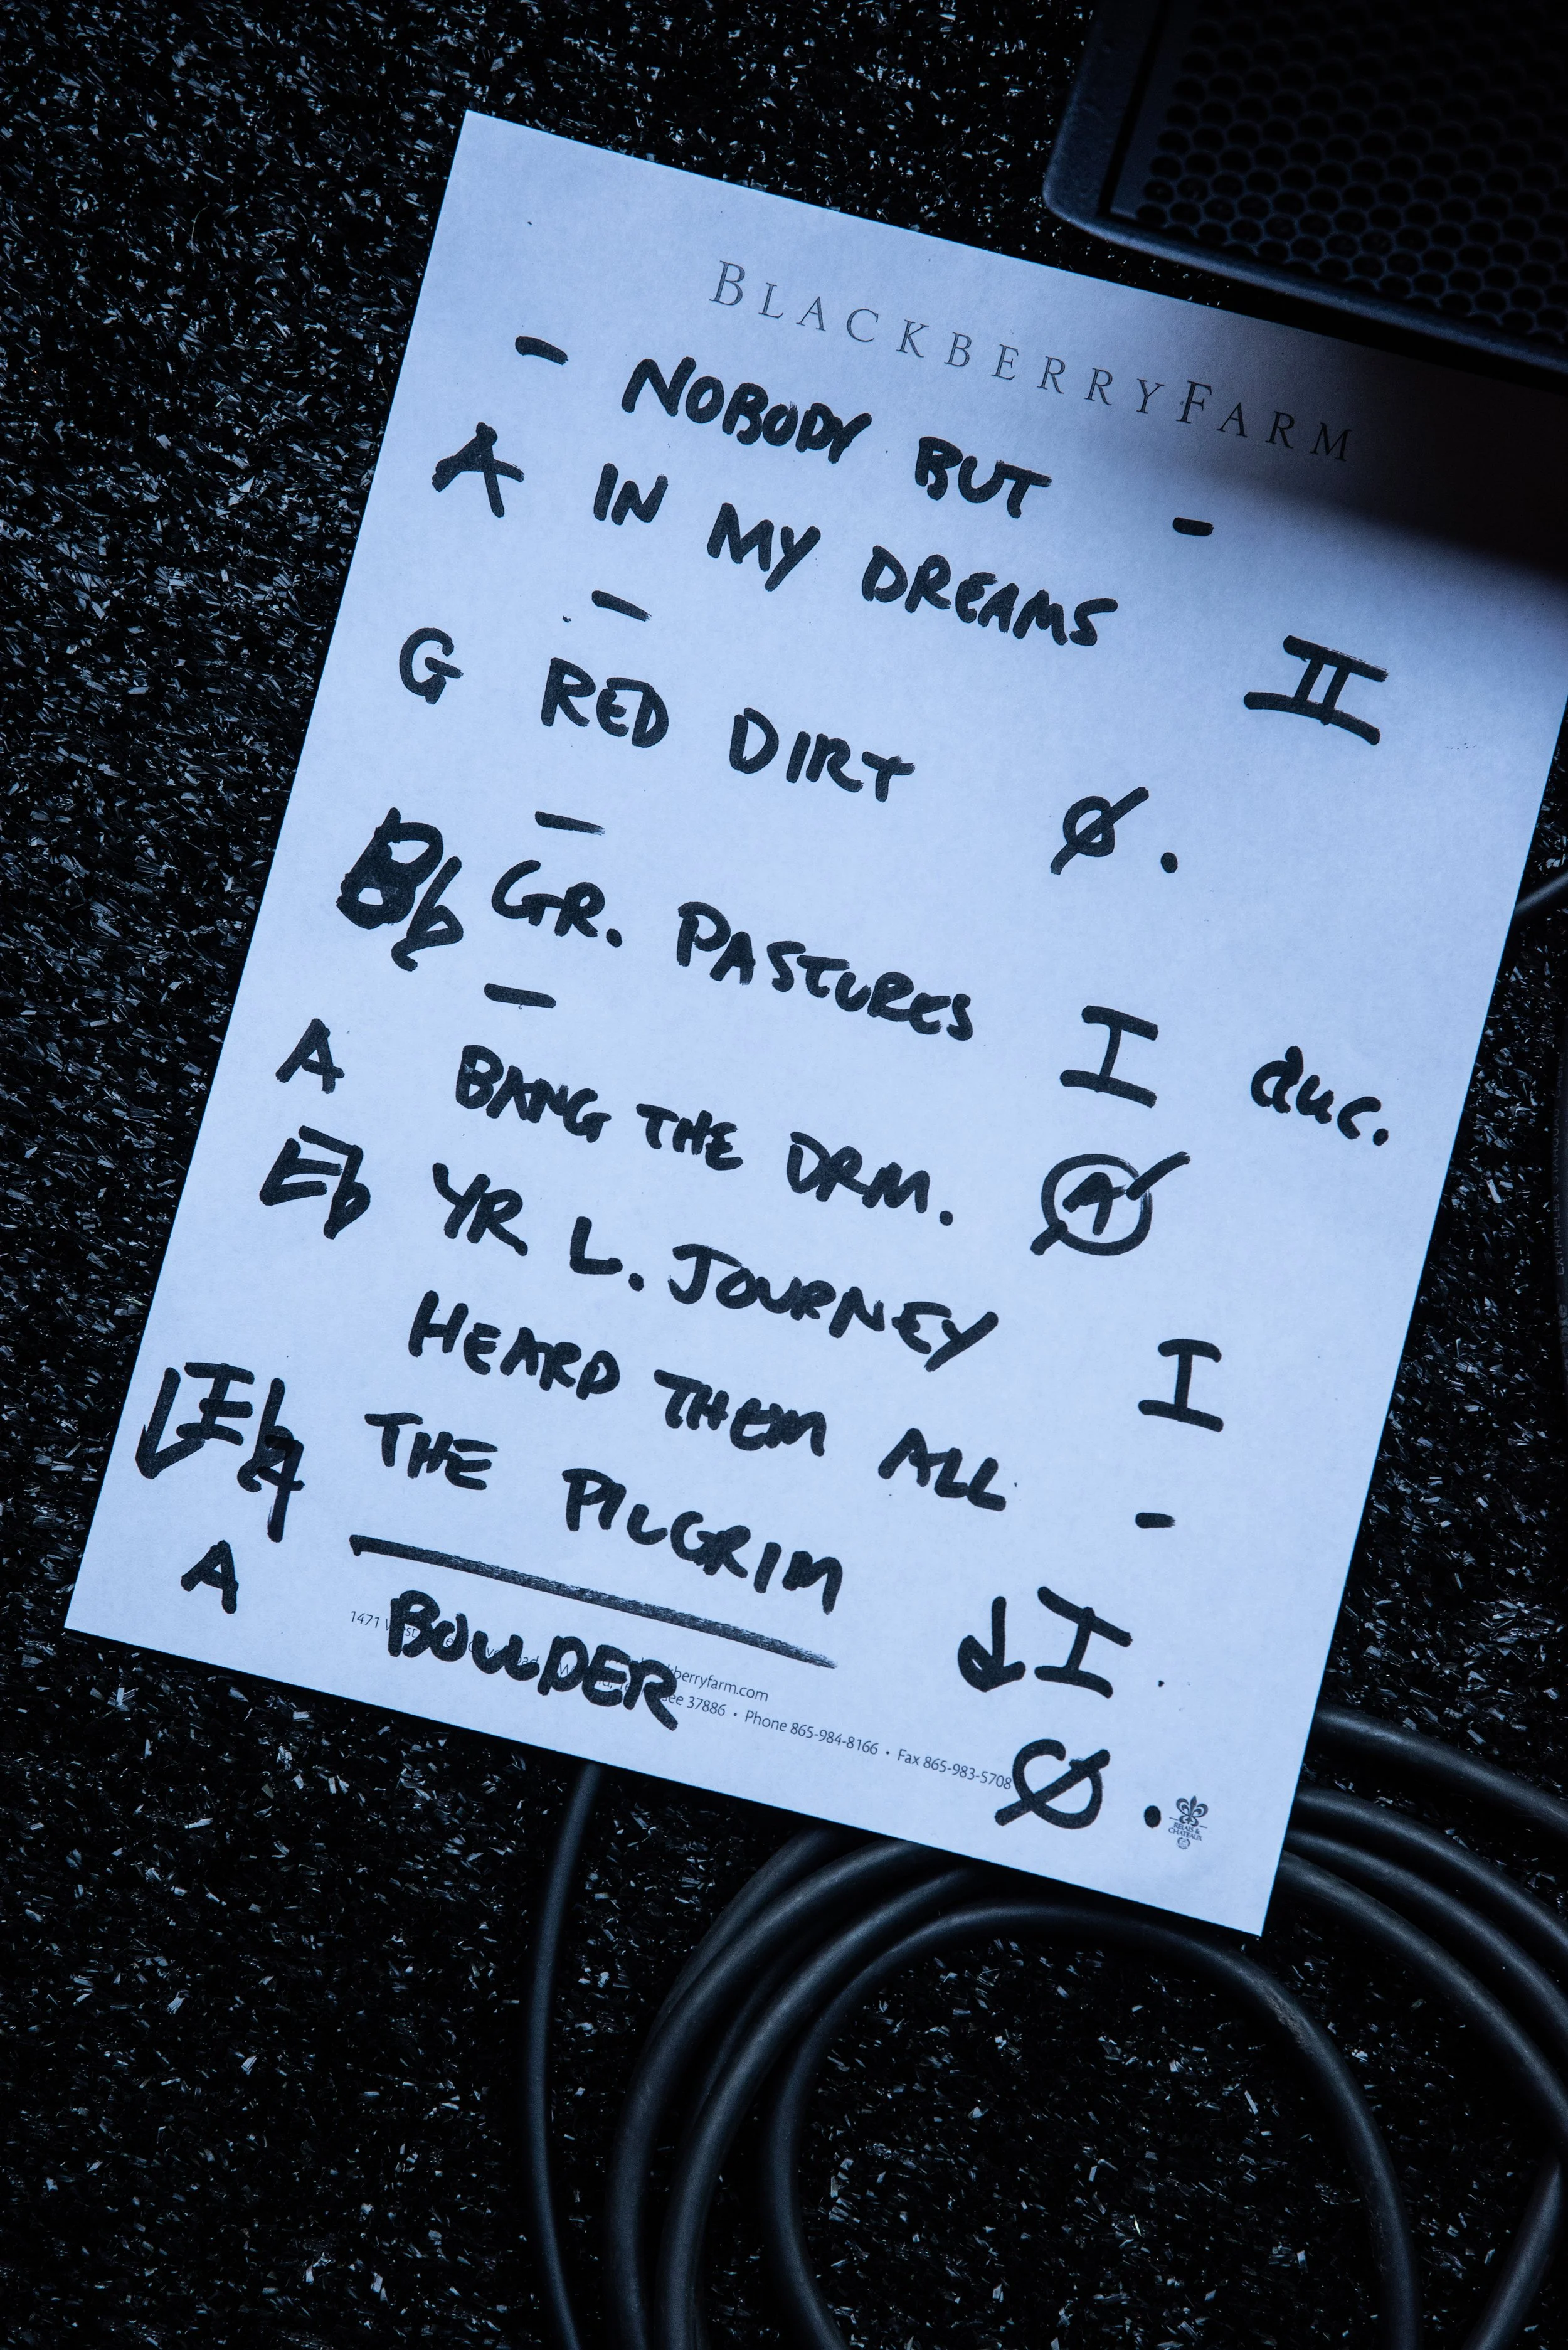 BLACKBERRY FARM
- NOBODY BUT -
A IN MY DREAMS II
-
G RED DIRT Ø.
-
Bb GR. PASTURES I duc.
-
A BANG THE DRM. A
Eb YR L. JOURNEY I
HEARD THEM ALL -
↓Eb THE PILGRIM ↓I
A BOULDER Ø.
1471 berryfarm.com
37886 • Phone 865-984-8166 • Fax 865-983-5708
RELAIS &
CHATEAUX